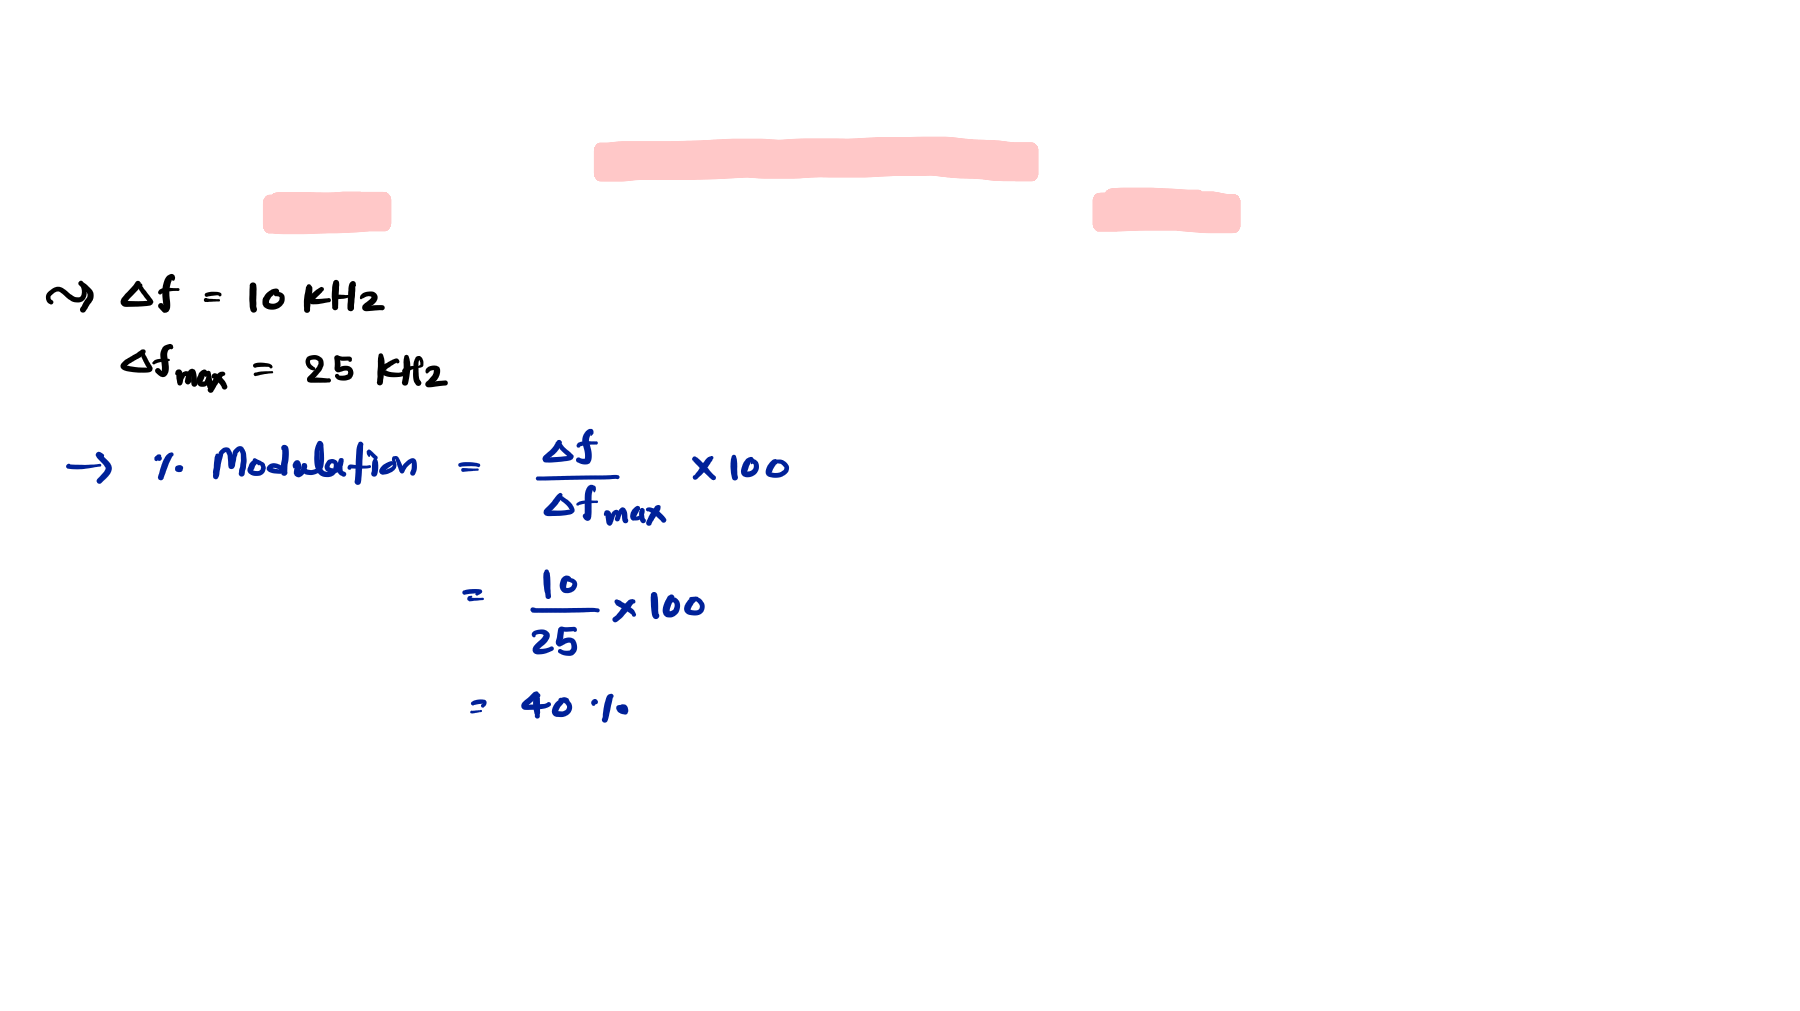 ~> Δf = 10 KHz
Δfmax = 25 KHz
→ % Modulation = Δf / Δfmax × 100
= 10 / 25 × 100
= 40 %